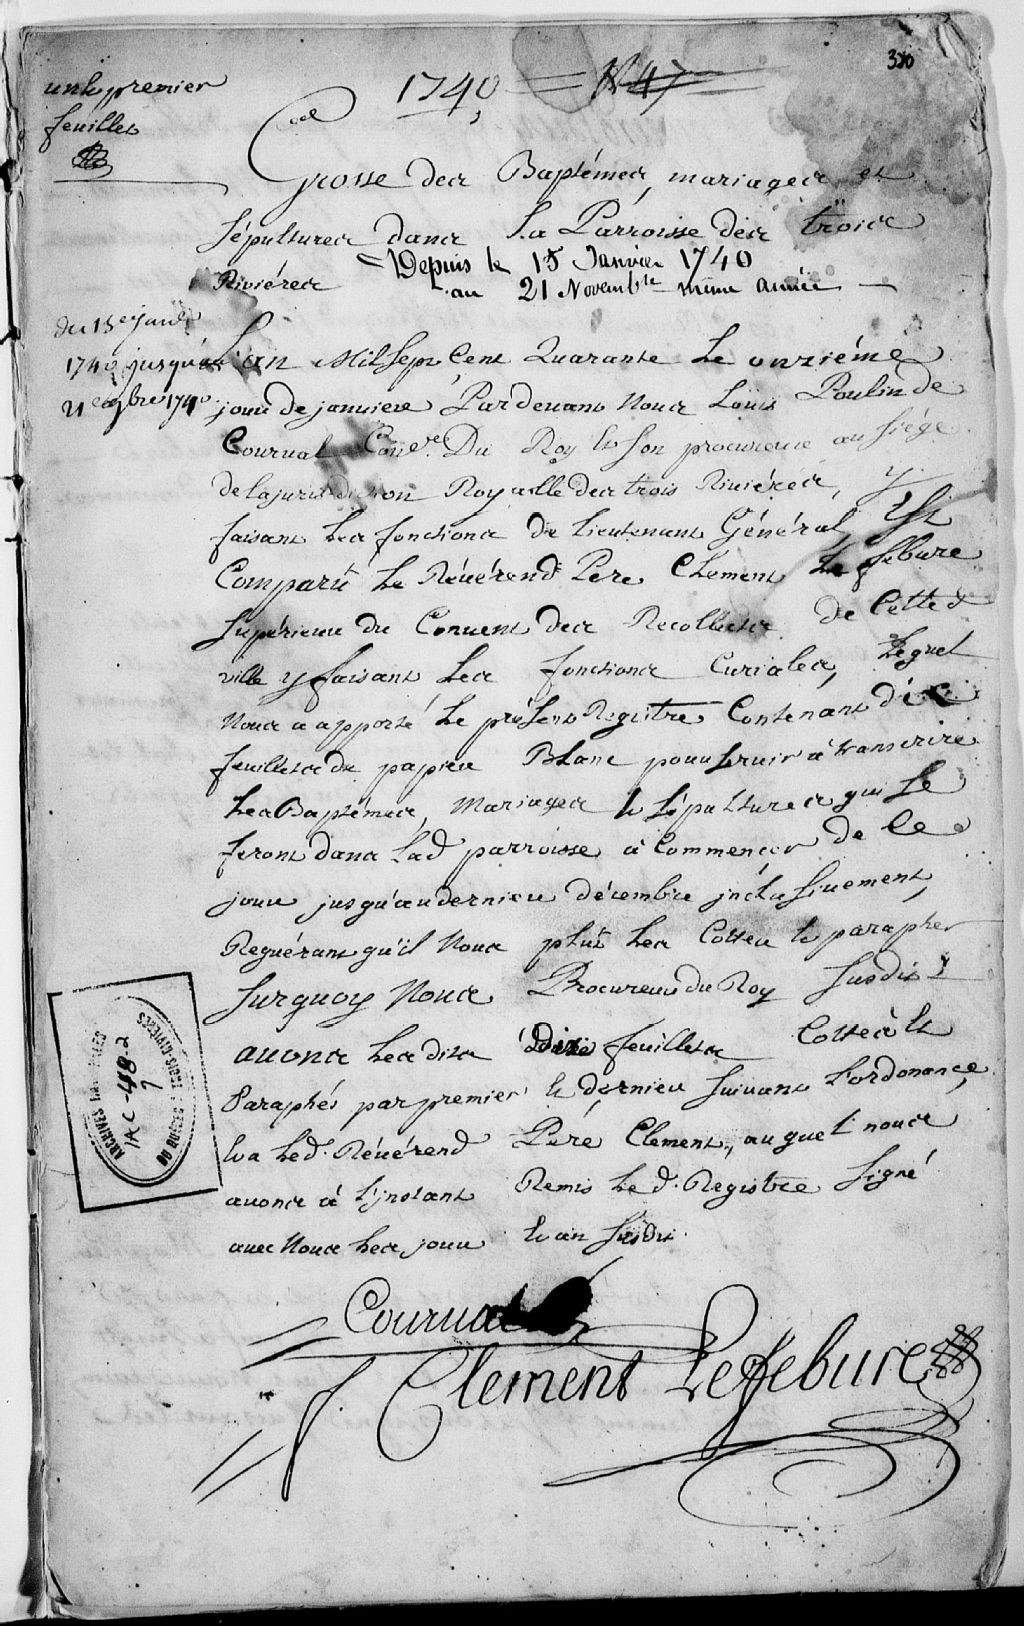 380
1740 N 47
premier
feuillet
Grosse des Baptémes, mariages et
sépultures dans la Parroisse des trois
Riviéres
Depuis le 15 Janvier 1740
au 21 Novembre meme année
du 15e janv
1740 jusqu'au
21 9bre 1740
L'an Mil Sept Cent Quarante Le onziéme
jour de janvier Pardevant Nous Loüis Poulin de
Courval Coner. Du Roy et Son procureur au Siége
de la jurisdiction Royalle des trois Riviéres, y
faisant Les fonctions de Lieutenant Général, Est
Comparû Le Révérend Pere Clement Lefebure
Supérieur du Convent des Recollets de Cette
ville y faisant Les fonctions Curiales, Lequel
Nous a apporté Le présent Registre Contenant dix
feuillets de papier Blanc pour servir à transcrire
Les Baptémes, Mariages et Sépultures qui Se
feront dans Lad parroisse à Commençer de Ce
jour jusqu'au dernier décembre jnclusivement,
Requérant qu'il Nous plût Les Cotter et parapher
Surquoy Nous Procureur du Roy Susdit
avons Les dits dix feuillets Cottés et
Paraphés par premier et dernier Suivant L'ordonance,
Led. Révérend Pere Clement, auquel nous
avons à L'jnstant Remis Led. Registre Signé
avec Nous Les jour et an Susdit
Courval
f. Clement Lefebure
ARCHIVES NATIONALES
DU QUEBEC A TROIS-RIVIERES
1AC-48-2
7